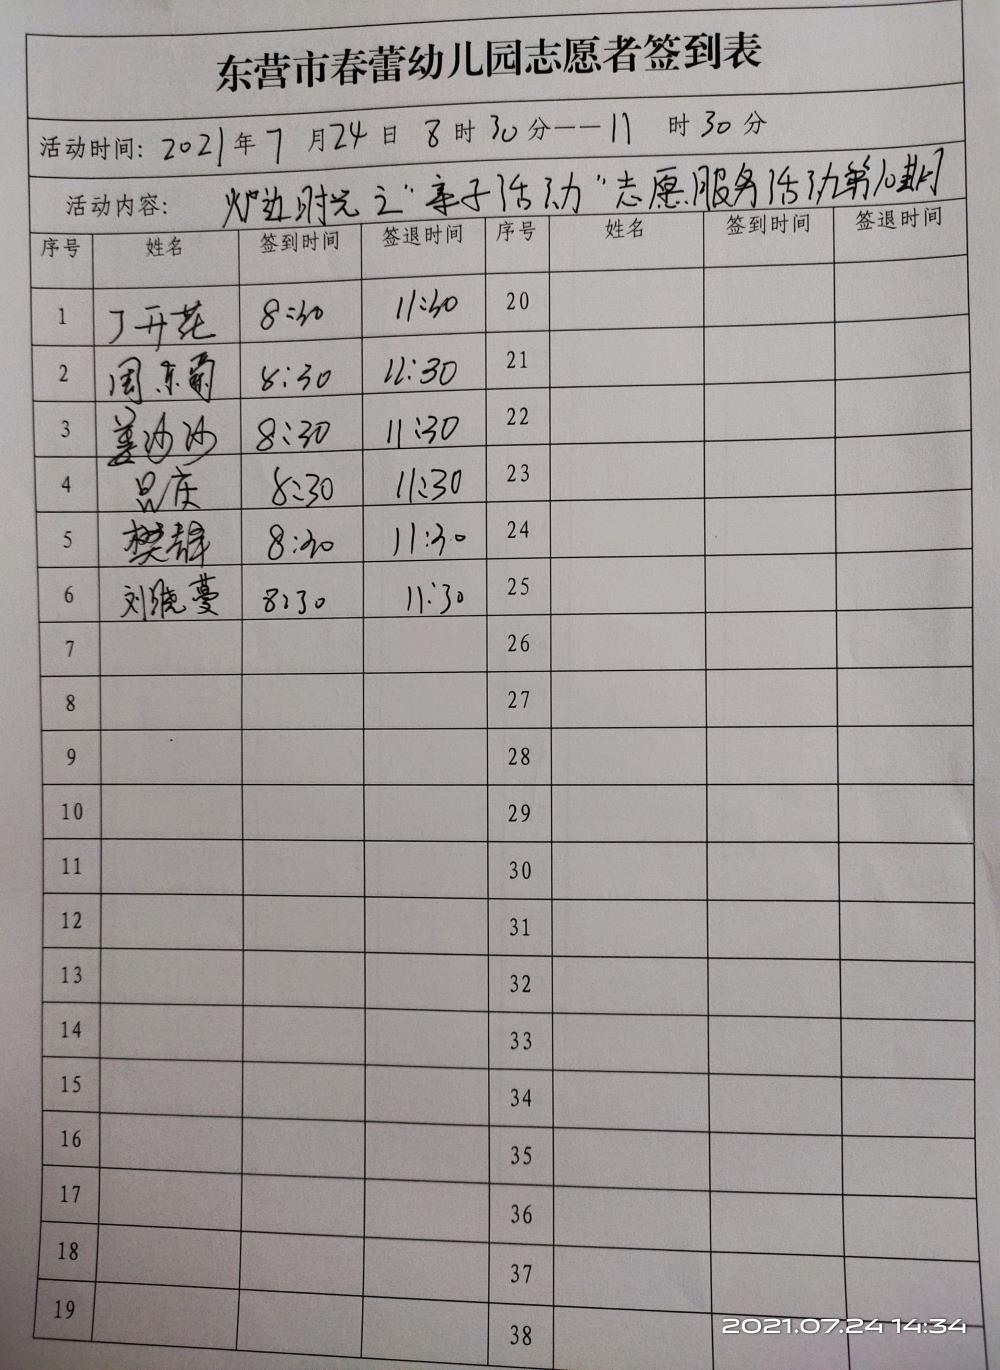 东营市春蕾幼儿园志愿者签到表
活动时间: 2021年7月24日 8时30分——11时30分
活动内容: 炉边时光之"亲子活动"志愿服务活动第10期
序号 姓名 签到时间 签退时间 序号 姓名 签到时间 签退时间
1 丁开花 8:30 11:30 20
2 周东菊 8:30 11:30 21
3 姜沙沙 8:30 11:30 22
4 8:30 11:30 23
5 樊 8:30 11:30 24
6 刘晓蔓 8:30 11:30 25
7 26
8 27
9 28
10 29
11 30
12 31
13 32
14 33
15 34
16 35
17 36
18 37
19 38
2021.07.24 14:34